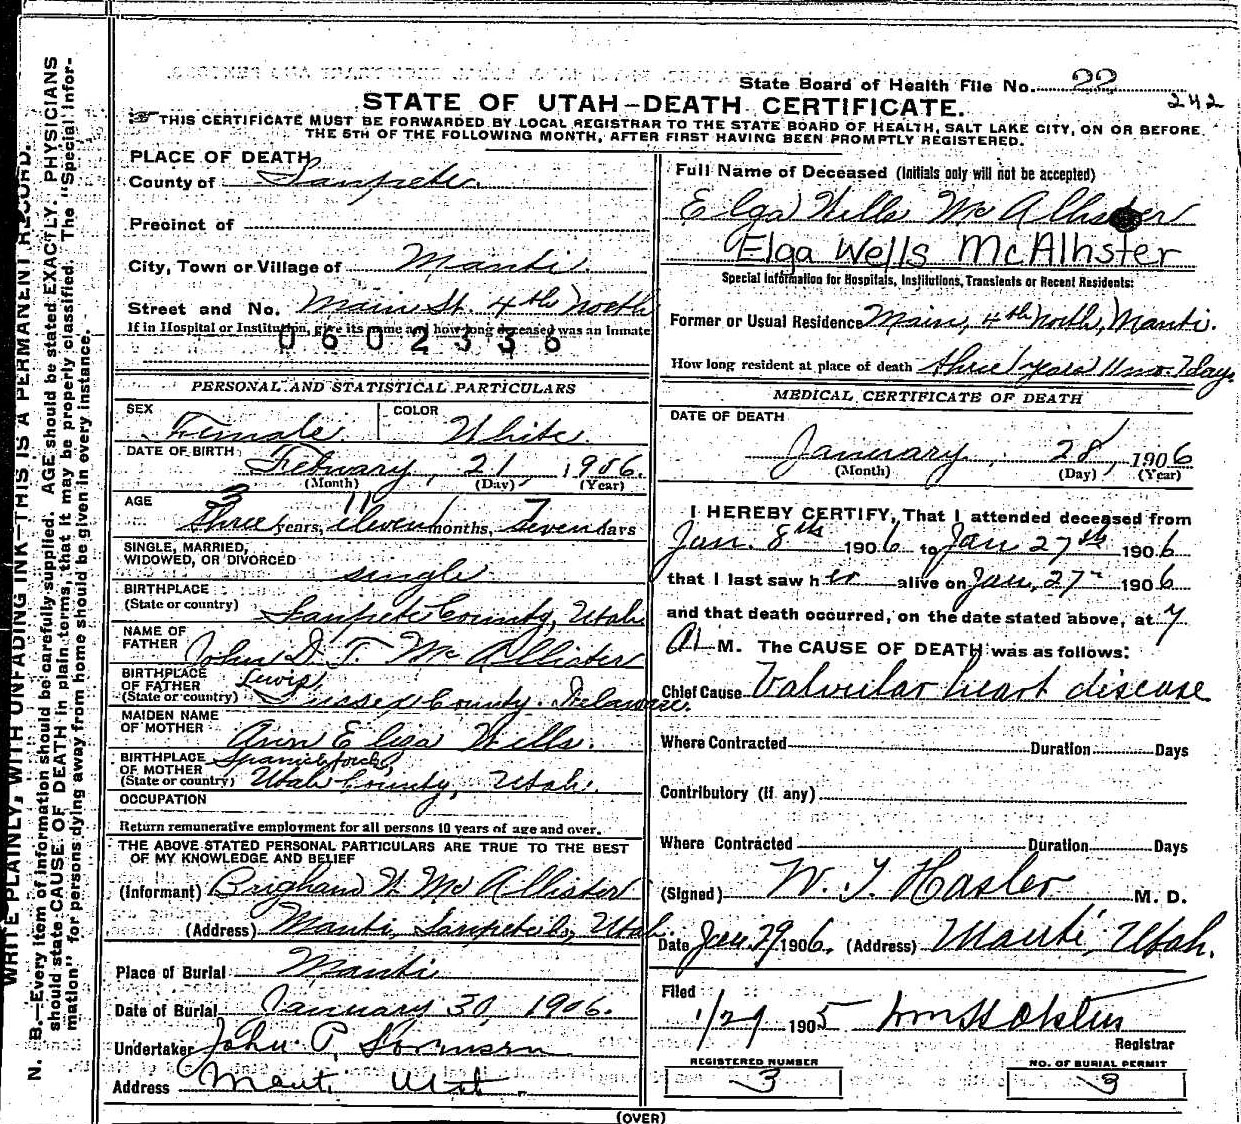 State Board of Health File No. 22
242
STATE OF UTAH—DEATH CERTIFICATE.
THIS CERTIFICATE MUST BE FORWARDED BY LOCAL REGISTRAR TO THE STATE BOARD OF HEALTH, SALT LAKE CITY, ON OR BEFORE
THE 5TH OF THE FOLLOWING MONTH, AFTER FIRST HAVING BEEN PROMPTLY REGISTERED.
WRITE PLAINLY, WITH UNFADING INK—THIS IS A PERMANENT RECORD.
N. B.—Every item of information should be carefully supplied. AGE should be stated EXACTLY. PHYSICIANS
should state CAUSE OF DEATH in plain terms, that it may be properly classified. The "Special Infor-
mation" for persons dying away from home should be given in every instance.
PLACE OF DEATH
County of Sanpete
Precinct of
City, Town or Village of Manti
Street and No. Main St. 4th North
If in Hospital or Institution, give its name and how long deceased was an Inmate
0602336
PERSONAL AND STATISTICAL PARTICULARS
SEX Female COLOR White
DATE OF BIRTH February, 21, 1906.
(Month) (Day) (Year)
3 11 7
AGE three years, eleven months, seven days
SINGLE, MARRIED,
WIDOWED, OR DIVORCED single
BIRTHPLACE
(State or country) Sanpete County, Utah
NAME OF
FATHER John D. T. McAllister
BIRTHPLACE
OF FATHER Lewis
(State or country) Sussex County. Delaware.
MAIDEN NAME
OF MOTHER Ann Eliza Wells.
BIRTHPLACE
OF MOTHER Spanish Fork,
(State or country) Utah County, Utah.
OCCUPATION
Return remunerative employment for all persons 10 years of age and over.
THE ABOVE STATED PERSONAL PARTICULARS ARE TRUE TO THE BEST
OF MY KNOWLEDGE AND BELIEF
(Informant) Brigham W. McAllister
(Address) Manti, Sanpete Co, Utah.
Place of Burial Manti
Date of Burial January 30, 1906.
Undertaker John P.
Address Manti Utah
Full Name of Deceased (Initials only will not be accepted)
Elga Wells McAllister
Elga Wells McAllister
Special Information for Hospitals, Institutions, Transients or Recent Residents:
Former or Usual Residence Main, 4th North, Manti.
How long resident at place of death three years 11 mo. 7 days
MEDICAL CERTIFICATE OF DEATH
DATE OF DEATH
January, 28, 1906
(Month) (Day) (Year)
I HEREBY CERTIFY, That I attended deceased from
Jan. 8th 1906 to Jan 27th 1906
that I last saw her alive on Jan. 27 1906
and that death occurred, on the date stated above, at 7
A. M. The CAUSE OF DEATH was as follows:
Chief Cause Valvular heart disease
Where Contracted Duration Days
Contributory (if any)
Where Contracted Duration Days
(Signed) W. T. Hasler M. D.
Date Jan 29 1906. (Address) Manti, Utah.
Filed
1/29 1905
Registrar
REGISTERED NUMBER
3
NO. OF BURIAL PERMIT
3
(OVER)